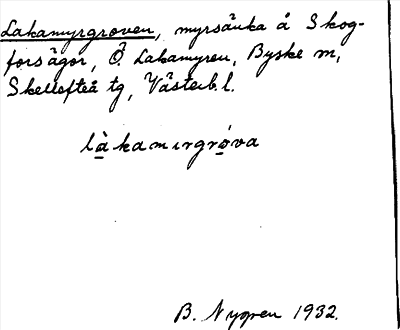 Lakamyrgroven, myrsänka å Skog-
forsägor, Ö. Lakamyren, Byske m,
Skellefteå tg, Västerb. l.
là̲kamırgró̲va
B. Nygren 1932.